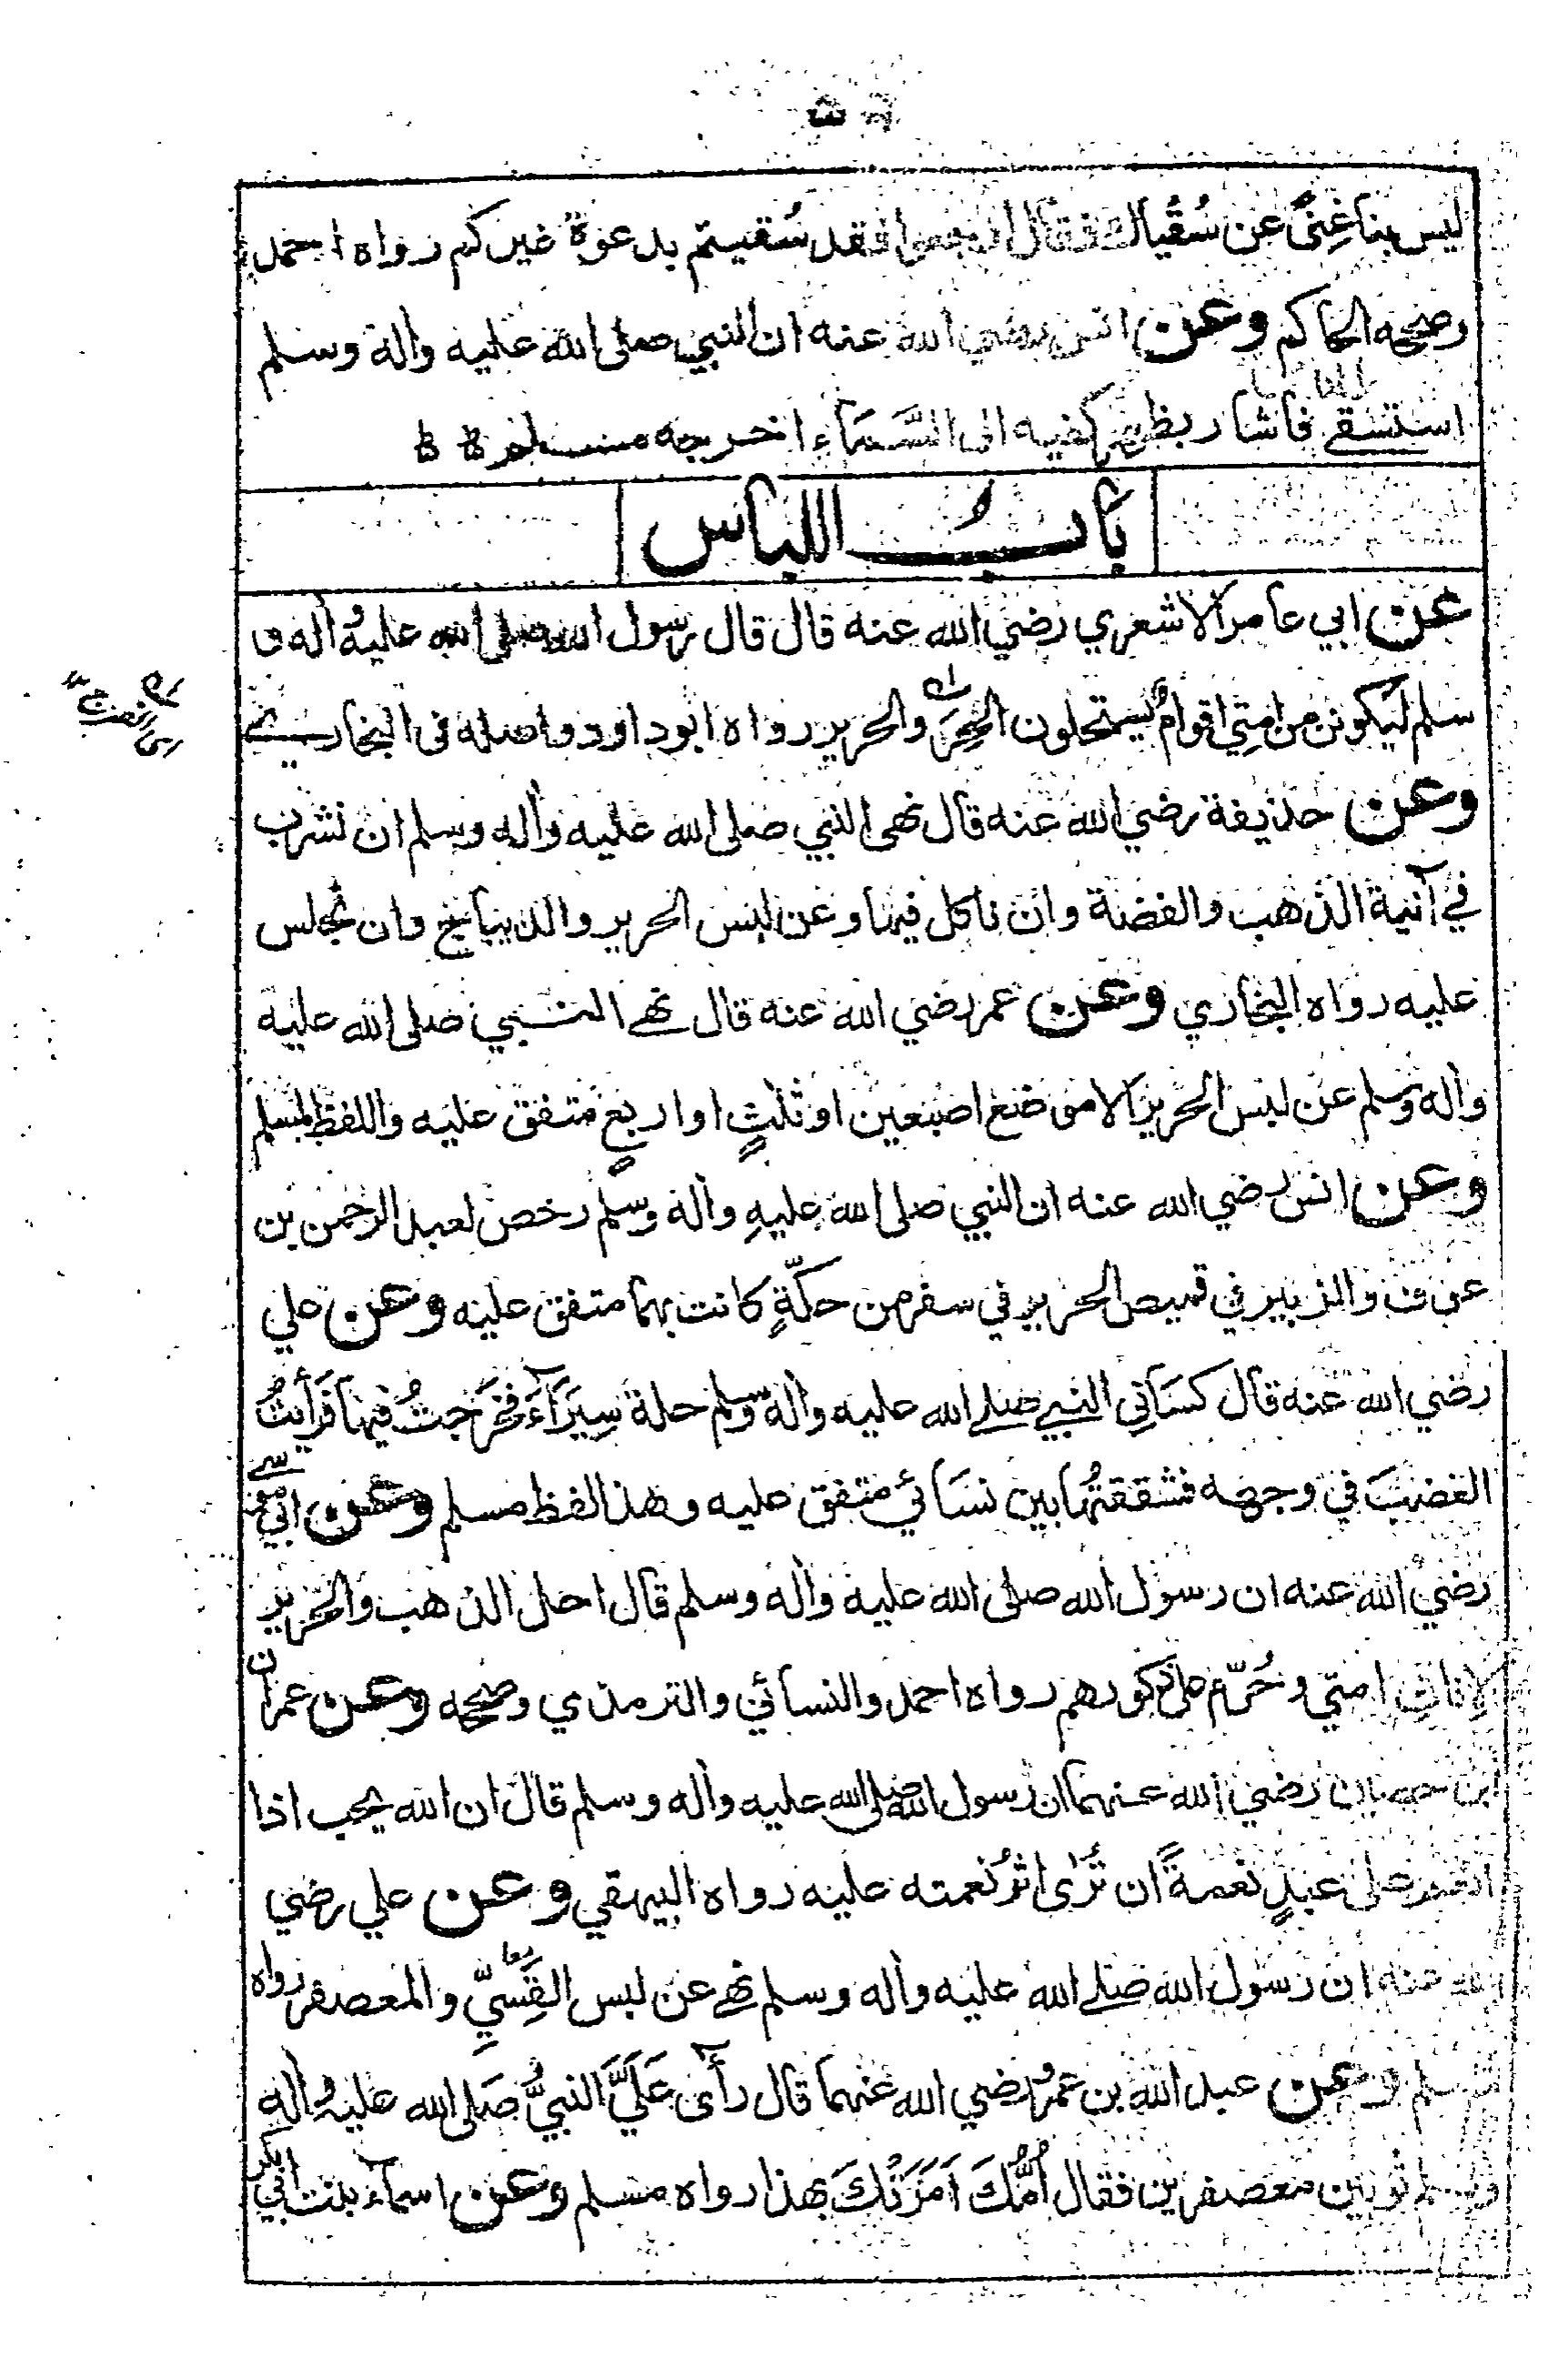 ليس بنا غِنًى عن سُقياك فقال ارجعوا فقد سُقيتم بدعوة غيركم رواه احمد
وصححه الحاكم وعن انس رضي الله عنه ان النبي صلى الله عليه وآله وسلم
استسقى فاشار بظهر كفيه الى السَّمَاءِ اخرجه مسلم
باب اللباس
عن ابي عامر الاشعري رضي الله عنه قال قال رسول الله صلى الله عليه وآله و
سلم ليكونن من امتي اقوامٌ يستحلون الحِرَ والحرير رواه ابوداود واصله في البخاري
وعن حذيفة رضي الله عنه قال نهى النبي صلى الله عليه وآله وسلم ان نشرب
في آنية الذهب والفضة وان ناكل فيها وعن لبس الحرير والديباج وان نجلس
عليه رواه البخاري وعن عمر رضي الله عنه قال نهى النبي صلى الله عليه
وآله وسلم عن لبس الحرير الا موضع اصبعين او ثلثٍ او اربعٍ متفق عليه واللفظ لمسلم
وعن انس رضي الله عنه ان النبي صلى الله عليهِ وآله وسلم رخص لعبد الرحمن بن
عوف والزبير في قميص الحرير في سفر من حكّةٍ كانت بهما متفق عليه وعن علي
رضي الله عنه قال كسَاني النبي صلى الله عليه وآله وسلم حلة سِيَرَآءَ فخَرَجتُ فيها فرَأَيتُ
الغضبَ في وجهه فشققتُها بين نسَائي متفق عليه وهذا لفظ مسلم وعن ابي موسى
رضي الله عنه ان رسول الله صلى الله عليه وآله وسلم قال احل الذهب والحرير
لاناثِ امتي وحُرّم على ذكورهم رواه احمد والنسائي والترمذي وصححه وعن عمران
ابن حصين رضي الله عنهما ان رسول الله صلى الله عليه وآله وسلم قال ان الله يحب اذا
انعم على عبدٍ نعمةً ان تُرى اثرُ نعمته عليه رواه البيهقي وعن علي رضي
الله عنه ان رسول الله صلى الله عليه وآله وسلم نهى عن لبس القَِسّيِّ والمعصفر رواه
مسلم وعن عبد الله بن عمرو رضي الله عنهما قال رأى عَلَيَّ النبيُّ صَلى الله عليه وآله
وسلم ثوبين معصفرين فقال أُمُّكَ اَمَرَتْكَ بهذا رواه مسلم وعن اسماء بنت ابي بكر